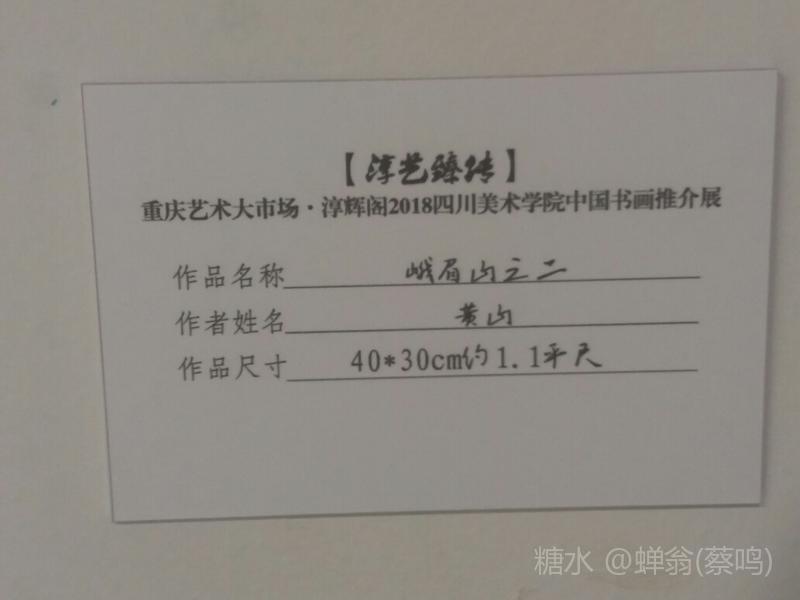 【淳艺臻传】
重庆艺术大市场·淳辉阁2018四川美术学院中国书画推介展
作品名称 峨眉山之二
作者姓名 黄山
作品尺寸 40*30cm约1.1平尺
糖水 @蝉翁(蔡鸣)